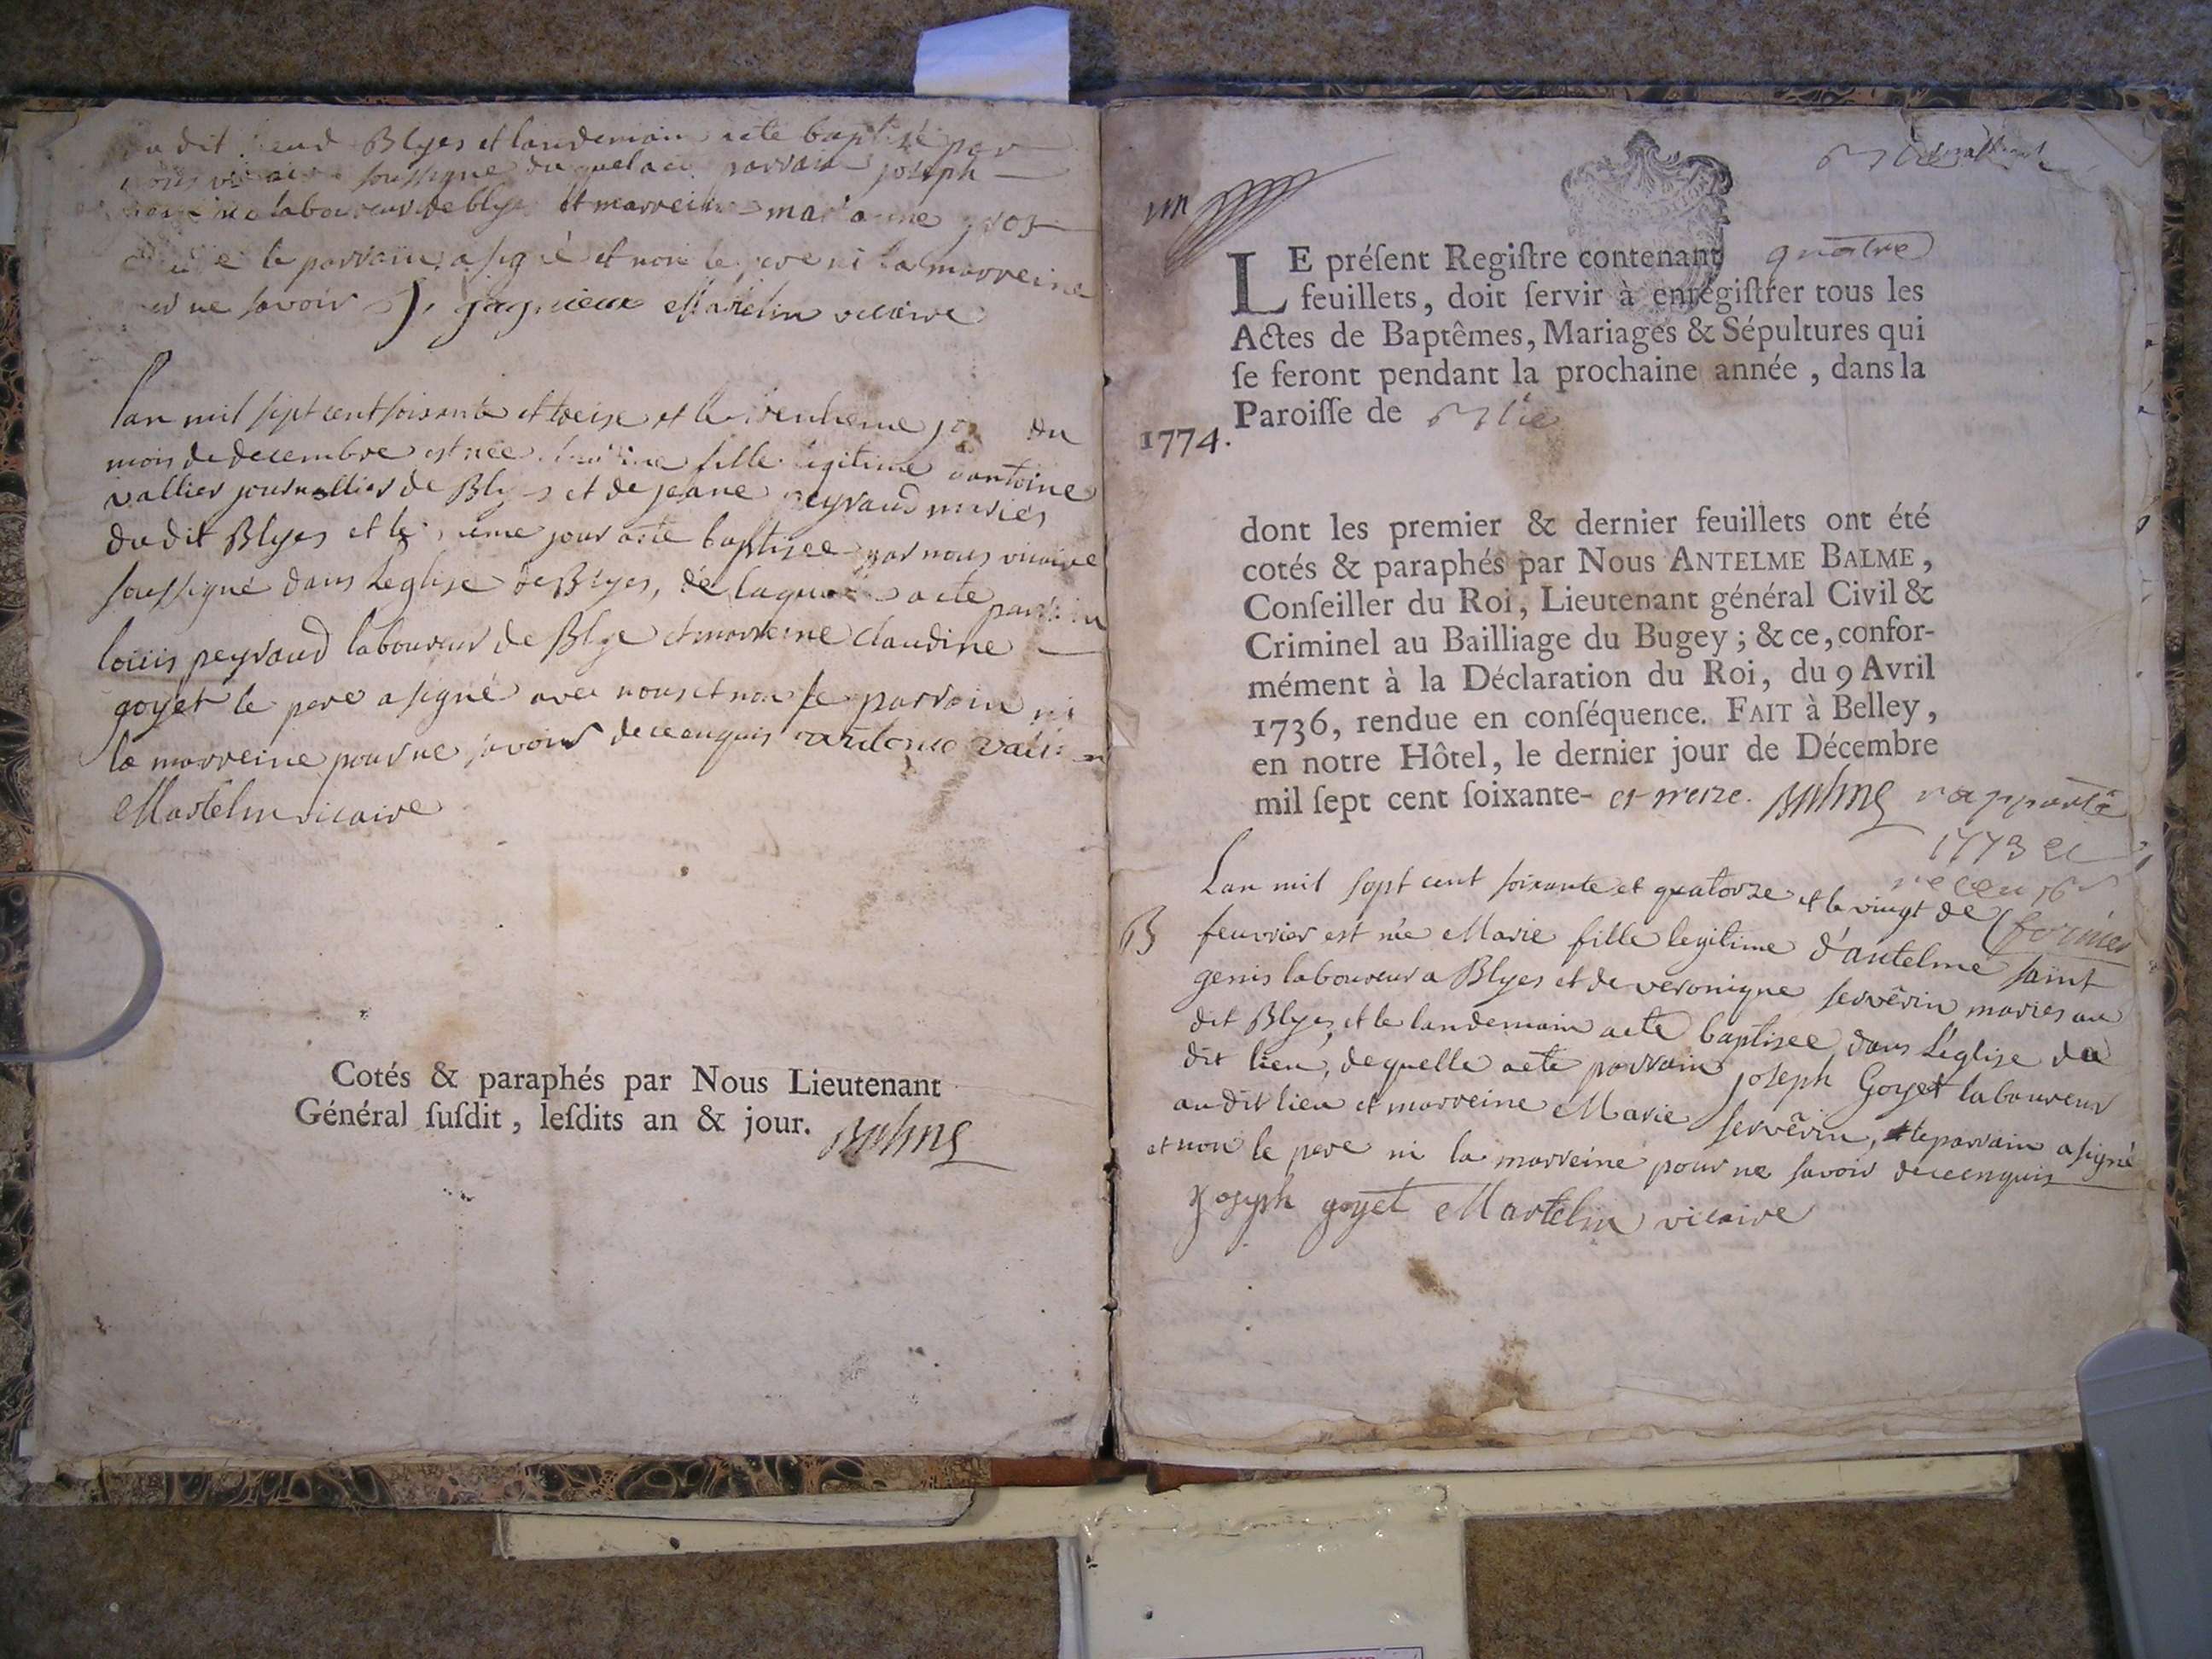 dudit Blyes et landemain acté baptisé par
nous vicaire soussigné duquel a été parrain joseph
laboureur de blye et marreine marianne gros
le parrain a signé et non le pere ni la marreine
ne savoir J, jagnieux Martelin vicaire
lan mil sept cent soisante et treise et le jour du
mois de decembre est née fille legitime d'antoine
vallier journallier de Blyes et de jeane peyraud mariés
dudit Blyes et le même jour acté baptisee par nous vicaire
soussigné dans Leglise de Blyes, de laquelle acté parrain
louis peyraud laboureur de Blye et marreine claudine
goyet le pere a signé avec nous et non le parrain ni
la marreine pour ne savoir de ce enquis antoine valier
Martelin vicaire
Cotés & paraphés par Nous Lieutenant
Général ſuſdit, leſdits an & jour. Balme
un
LE préſent Regiſtre contenant quatre
feuillets, doit ſervir à enregiſtrer tous les
Actes de Baptêmes, Mariages & Sépultures qui
ſe feront pendant la prochaine année, dans la
Paroiſſe de Blie
1774.
dont les premier & dernier feuillets ont été
cotés & paraphés par Nous ANTELME BALME,
Conſeiller du Roi, Lieutenant général Civil &
Criminel au Bailliage du Bugey; & ce, confor-
mément à la Déclaration du Roi, du 9 Avril
1736, rendue en conſéquence. FAIT à Belley,
en notre Hôtel, le dernier jour de Décembre
mil ſept cent ſoixante- et treize. Balme rapporté
1773 et
receu
Lan mil sept cent soixante et quatorze et le vingt de
B feuvrier est née Marie fille legitime d'antelme saint
genis laboureur a Blyes et de veronique servêrin mariés au
dit Blyes, et le landemain acté baptisee dans L'église du
dit lieu, de quelle acté parrain joseph Goyet laboureur
au dit lieu et marreine Marie servêrin, le parrain a signé
et non le pere ni la marreine pour ne savoir de ce enquis
Joseph goyet Martelin vicaire